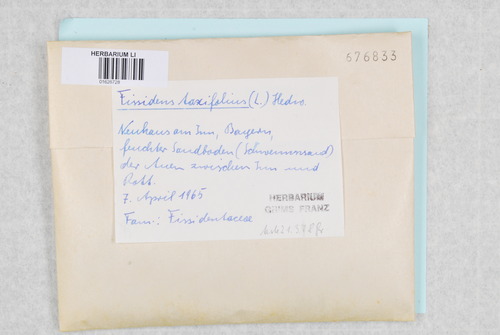 HERBARIUM LI
676833
Fissidens taxifolius (L.) Hedw.
Neuhaus am Inn, Bayern,
feuchter Sandboden (Schwemmsand)
der Auen zwischen Inn und
Rott.
7. April 1965
Fam.: Fissidentaceae
HERBARIUM
GRIMS FRANZ